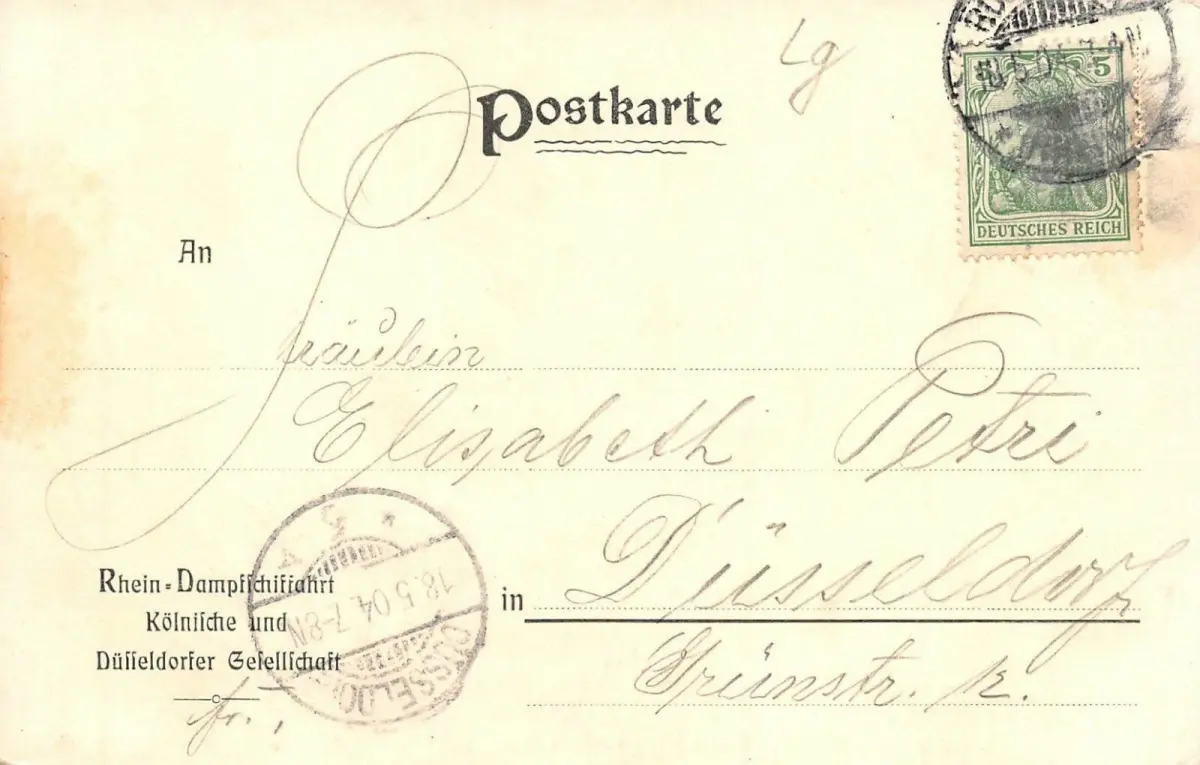 Lg
Postkarte
5
DEUTSCHES REICH
An
Fräulein
Elisabeth Petri
in Düsseldorf
Grünstr. 12.
Rhein-Dampfschiffahrt
Kölnische und
Düsseldorfer Gesellschaft
fr.,
DÜSSELDO
18.5.04.7-8N
3